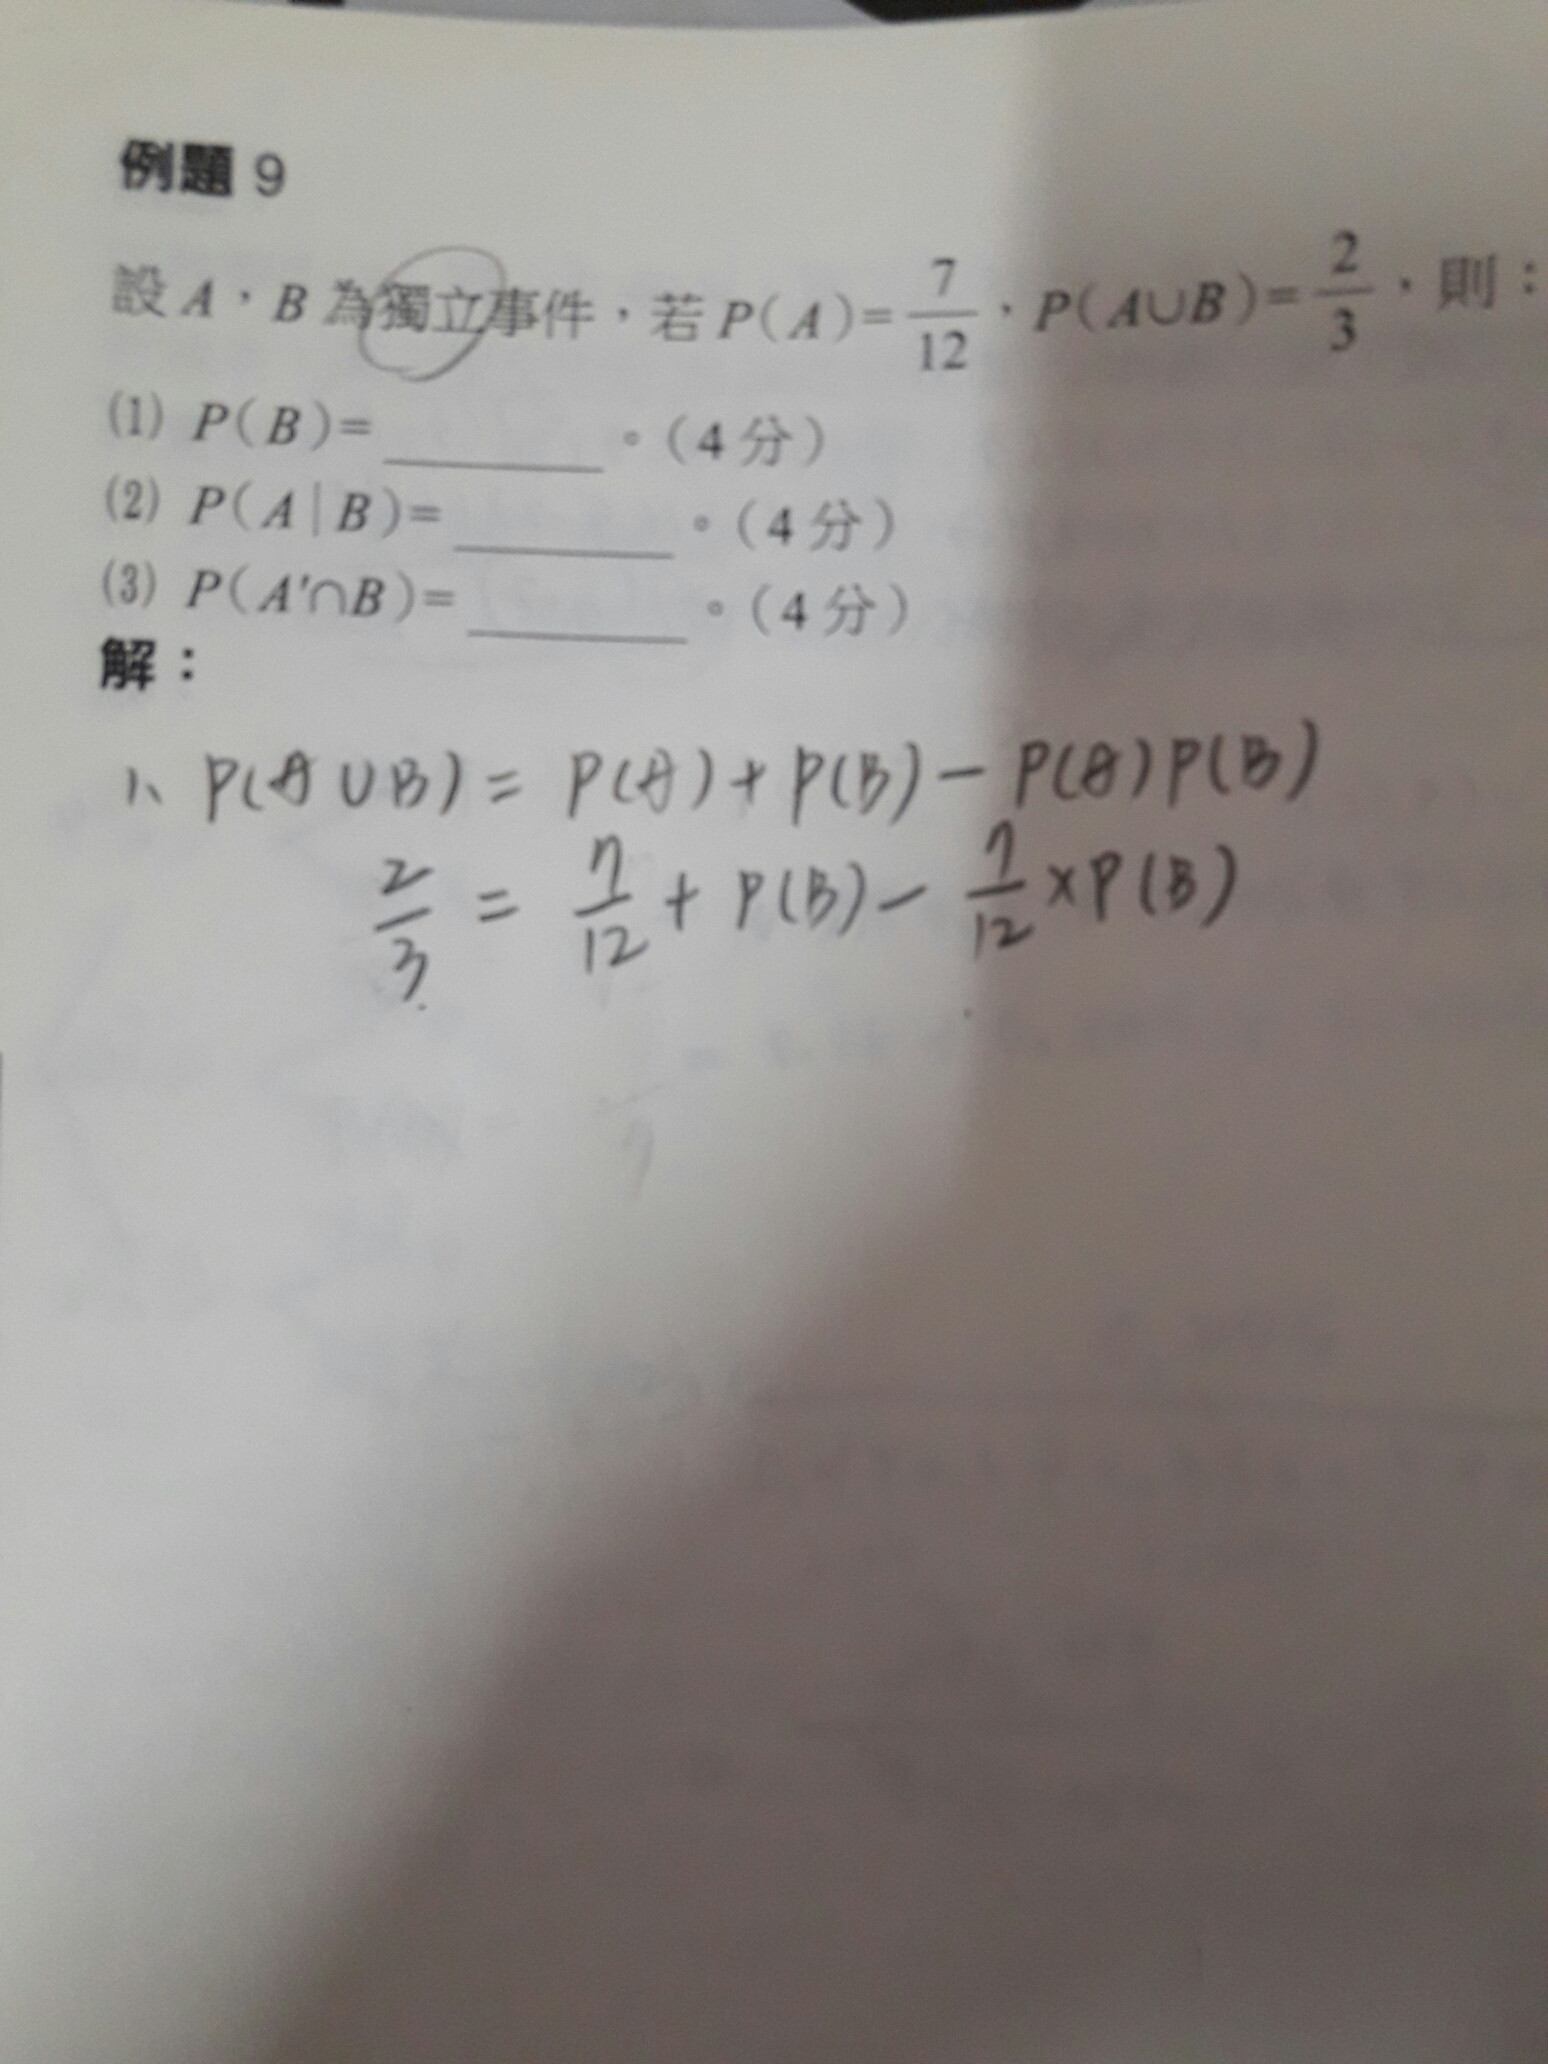 例題 9
設 A，B 為獨立事件，若 P(A)=7/12，P(A∪B)=2/3，則：
(1) P(B)=______。(4 分)
(2) P(A|B)=______。(4 分)
(3) P(A'∩B)=______。(4 分)
解：
1、P(A∪B)=P(A)+P(B)-P(A)P(B)
2/3=7/12+P(B)-7/12×P(B)